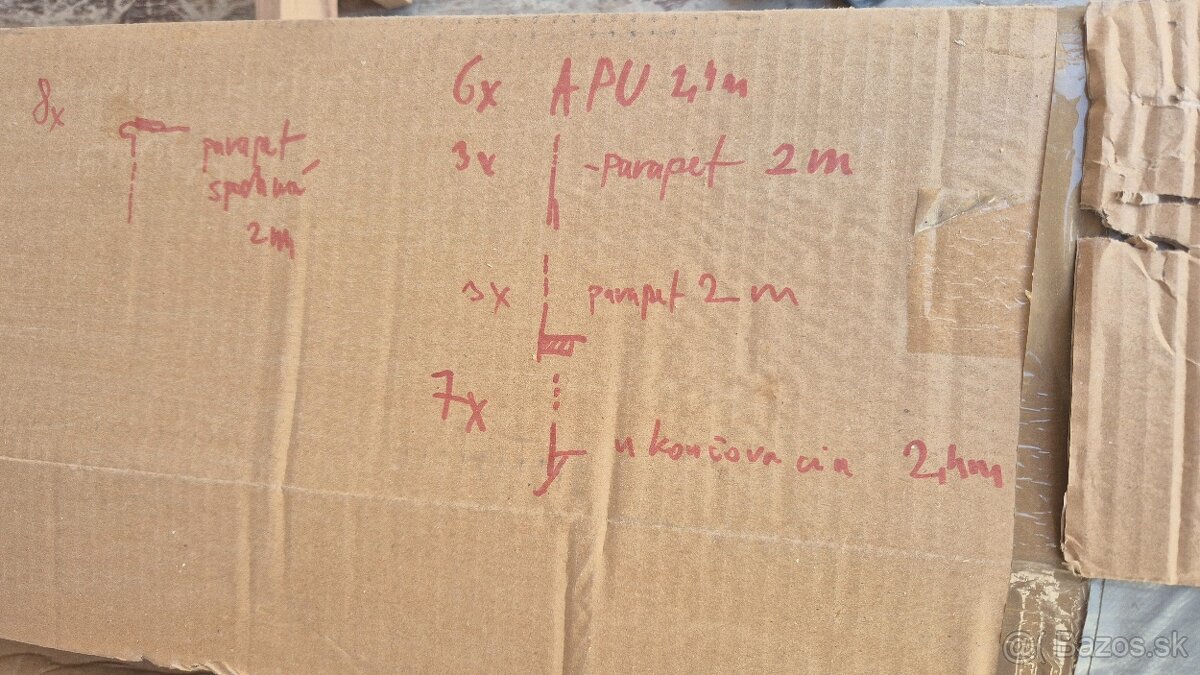 8x
parapet
spodná
2m
6x APU 2,4m
3x - parapet 2m
3x parapet 2m
7x ukončovacia 2,4m
@ Bazos.sk